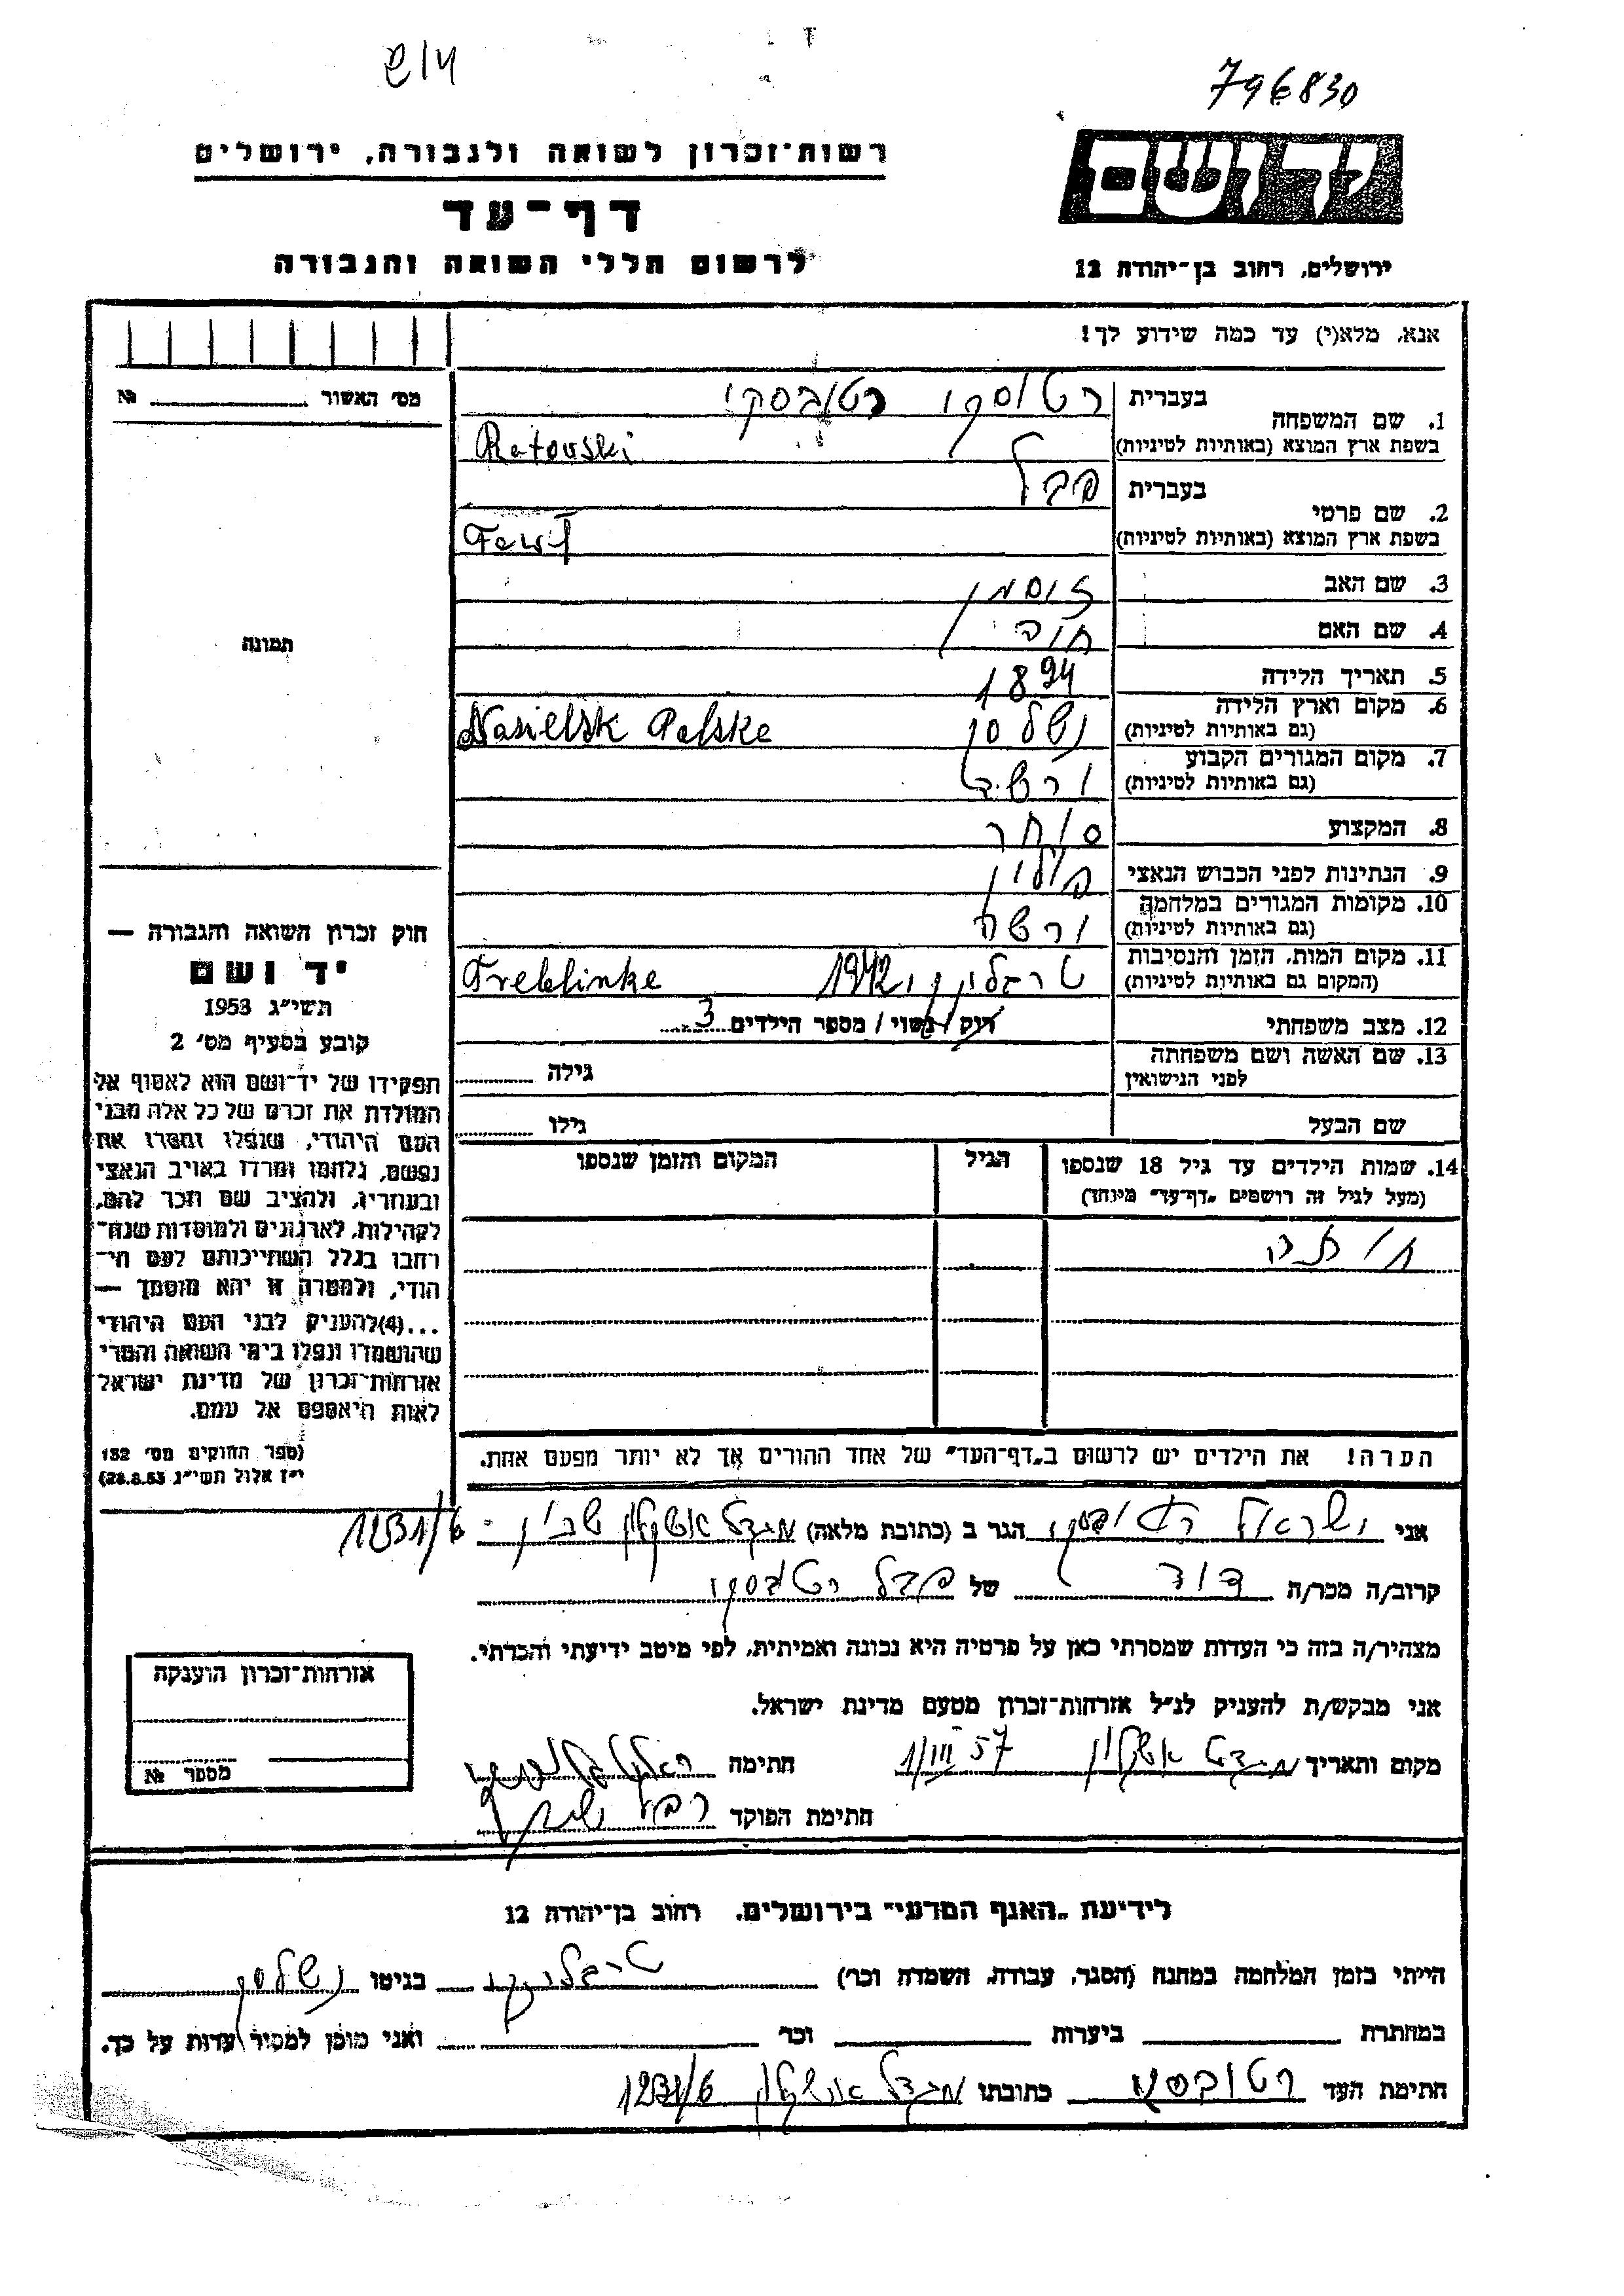 796830
רשות־זכרון לשואה ולגבורה, ירושלים
יד ושם
דף־עד
לרשום חללי השואה והגבורה
ירושלים, רחוב בן־יהודה 12
אנא, מלא(י) עד כמה שידוע לך!
מס׳ האשור № 
1. שם המשפחה בעברית רטוסקי רטובסקי
בשפת ארץ המוצא (באותיות לטיניות) Ratovski
2. שם פרטי בעברית פבל
בשפת ארץ המוצא (באותיות לטיניות)
3. שם האב זוסמן
4. שם האם חוה
תמונה
5. תאריך הלידה 1894
6. מקום וארץ הלידה (גם באותיות לטיניות) נשלסק Nasielsk Polska
7. מקום המגורים הקבוע (גם באותיות לטיניות) ורשה
8. המקצוע סוחר
9. הנתינות לפני הכבוש הנאצי פולין
10. מקומות המגורים במלחמה (גם באותיות לטיניות) ורשה
11. מקום המות, הזמן והנסיבות (המקום גם באותיות לטיניות) 1942 Treblinke
12. מצב משפחתי רוק / נשוי / מספר הילדים 3
13. שם האשה ושם משפחתה לפני הנישואין גילה
שם הבעל גילו
14. שמות הילדים עד גיל 18 שנספו (מעל לגיל זה רושמים „דף־עד״ מיוחד) הגיל המקום והזמן שנספו
הערה! את הילדים יש לרשום ב„דף־העד״ של אחד ההורים אך לא יותר מפעם אחת.
חוק זכרון השואה והגבורה —
יד ושם
תשי״ג 1953
קובע בסעיף מס׳ 2
תפקידו של יד־ושם הוא לאסוף אל
המולדת את זכרם של כל אלה מבני
העם היהודי, שנפלו ומסרו את
נפשם, נלחמו ומרדו באויב הנאצי
ובעוזריו, ולהציב שם וזכר להם,
לקהילות, לארגונים ולמוסדות שנח־
רבו בגלל השתייכותם לעם הי־
הודי, ולמטרה זו יהא מוסמך —
...(4) להעניק לבני העם היהודי
שהושמדו ונפלו בימי השואה והמרי
אזרחות־זכרון של מדינת ישראל
לאות היאספם אל עמם.
(ספר החוקים מס׳ 132
י״ז אלול תשי״ג 28.8.53)
אני ישראל רטובסקי הגר ב (כתובת מלאה) מגדל אשקלון שכון - 1231/6
קרוב/ה מכר/ה דוד של פבל רטובסקי
מצהיר/ה בזה כי העדות שמסרתי כאן על פרטיה היא נכונה ואמיתית, לפי מיטב ידיעתי והכרתי.
אני מבקש/ת להעניק לנ״ל אזרחות־זכרון מטעם מדינת ישראל.
מקום ותאריך מגדל אשקלון 1/III 57 חתימה
חתימת הפוקד
אזרחות־זכרון הוענקה
מספר №
לידיעת „האגף המדעי״ בירושלים, רחוב בן־יהודה 12
הייתי בזמן המלחמה במחנה (הסגר, עבודה, השמדה וכו׳) טרבלינקי בגיטו נשלסק
במחתרת ביערות וכו׳ ואני מוכן למסור עדות על כך.
חתימת העד רטובסקי כתובתו מגדל אשקלון 1231/6